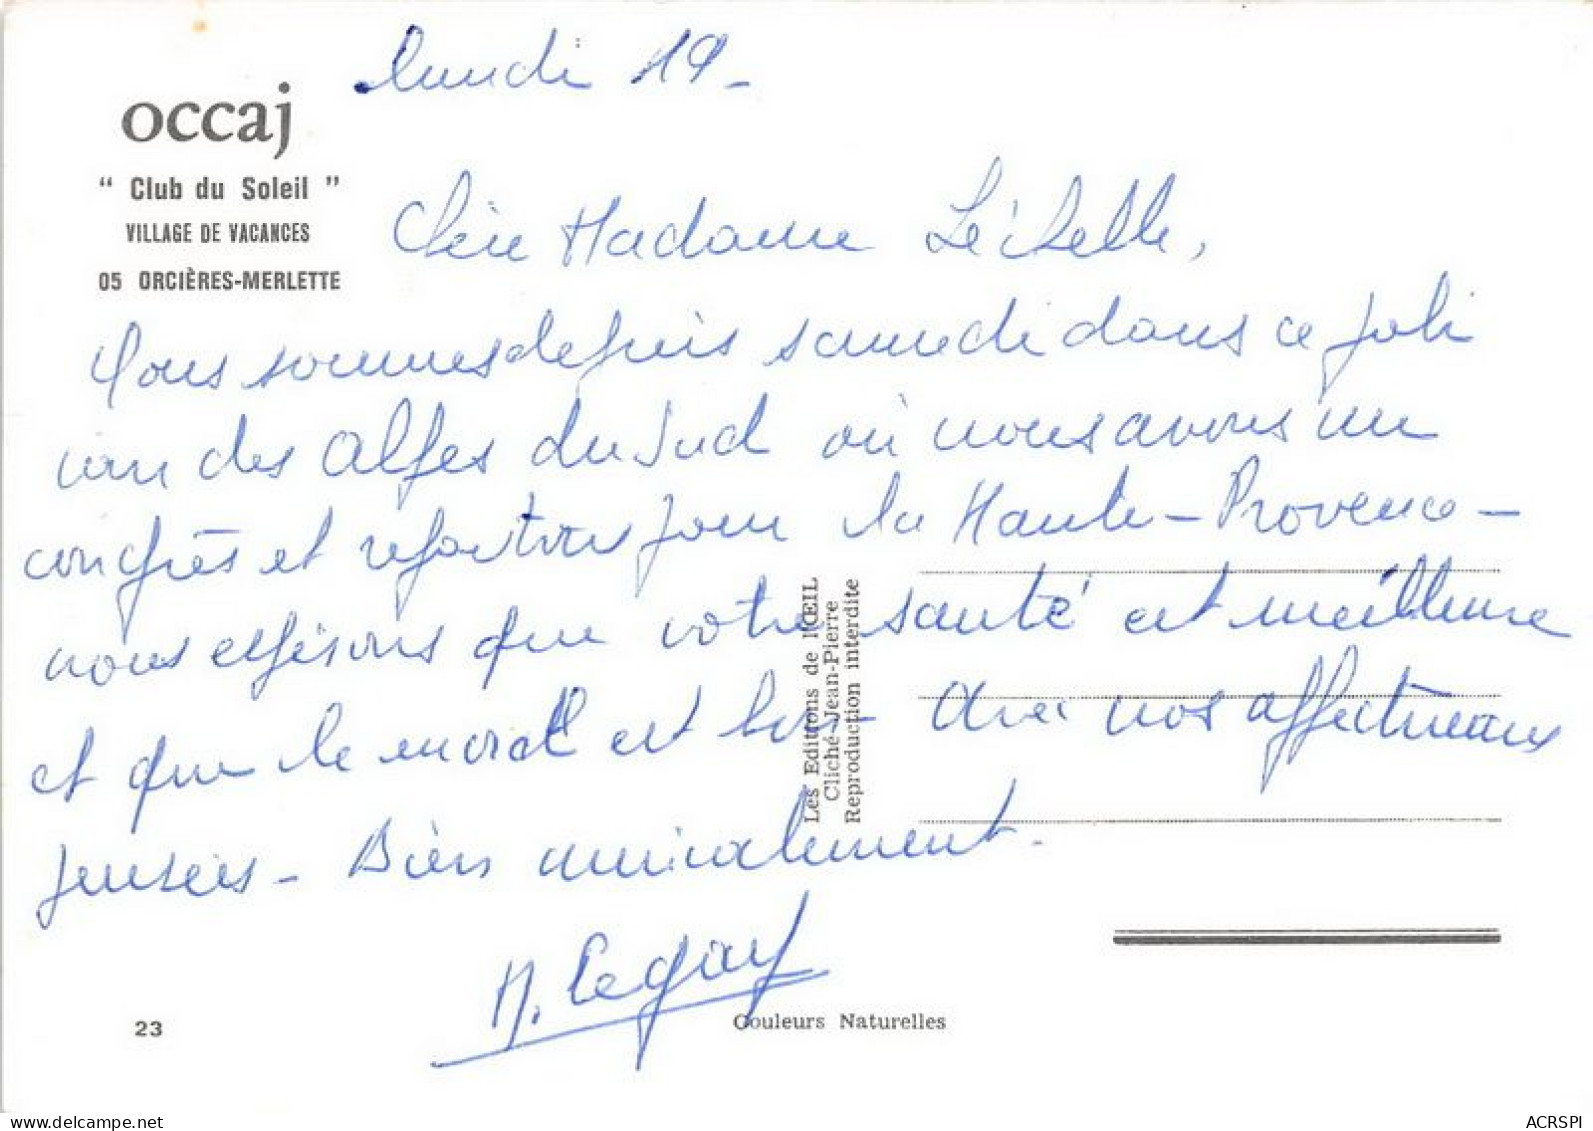 lundi 19 -
occaj
" Club du Soleil "
VILLAGE DE VACANCES
05 ORCIÈRES-MERLETTE
Chère Madame Léchelle,
Nous sommes depuis samedi dans ce joli
coin des Alpes du Sud où nous avons un
congrès et repartons pour la Haute-Provence -
nous espérons que votre santé est meilleure
et que le moral est bon - Avec nos affectueuses
pensées - Bien amicalement.
Legay
Les Editions de l'ŒIL
Cliché Jean-Pierre
Reproduction interdite
23
Couleurs Naturelles
delcampe.net
ACRSPI